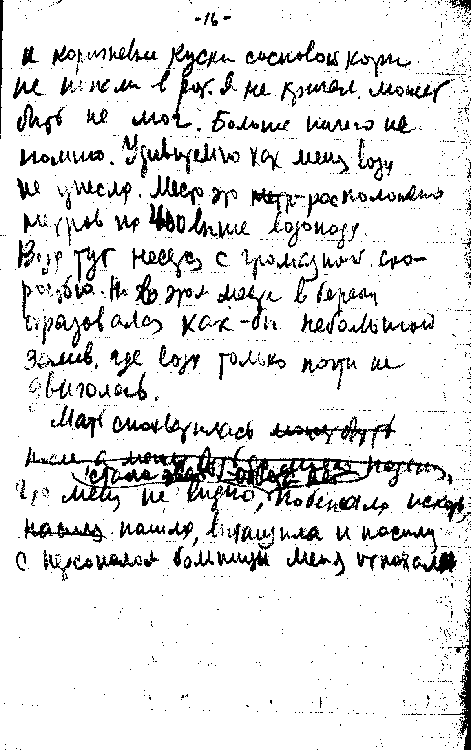 -16-
и коричневые куски сосновой коры
не попали в рот. Я не кричал, может
быть не мог. Больше ничего не
помню. Удивительно как меня вода
не унесла. Место это расположено
метров на 400 выше водопада.
Вода тут несется с громадной ско-
ростью. Но в этом месте в берегу
образовался как-бы небольшой
залив, где вода только почти не
двигалась.
Мать спохватилась
после
что меня не видно, побежала искать,
нашла, вытащила и
с персоналом больницы меня откачали.